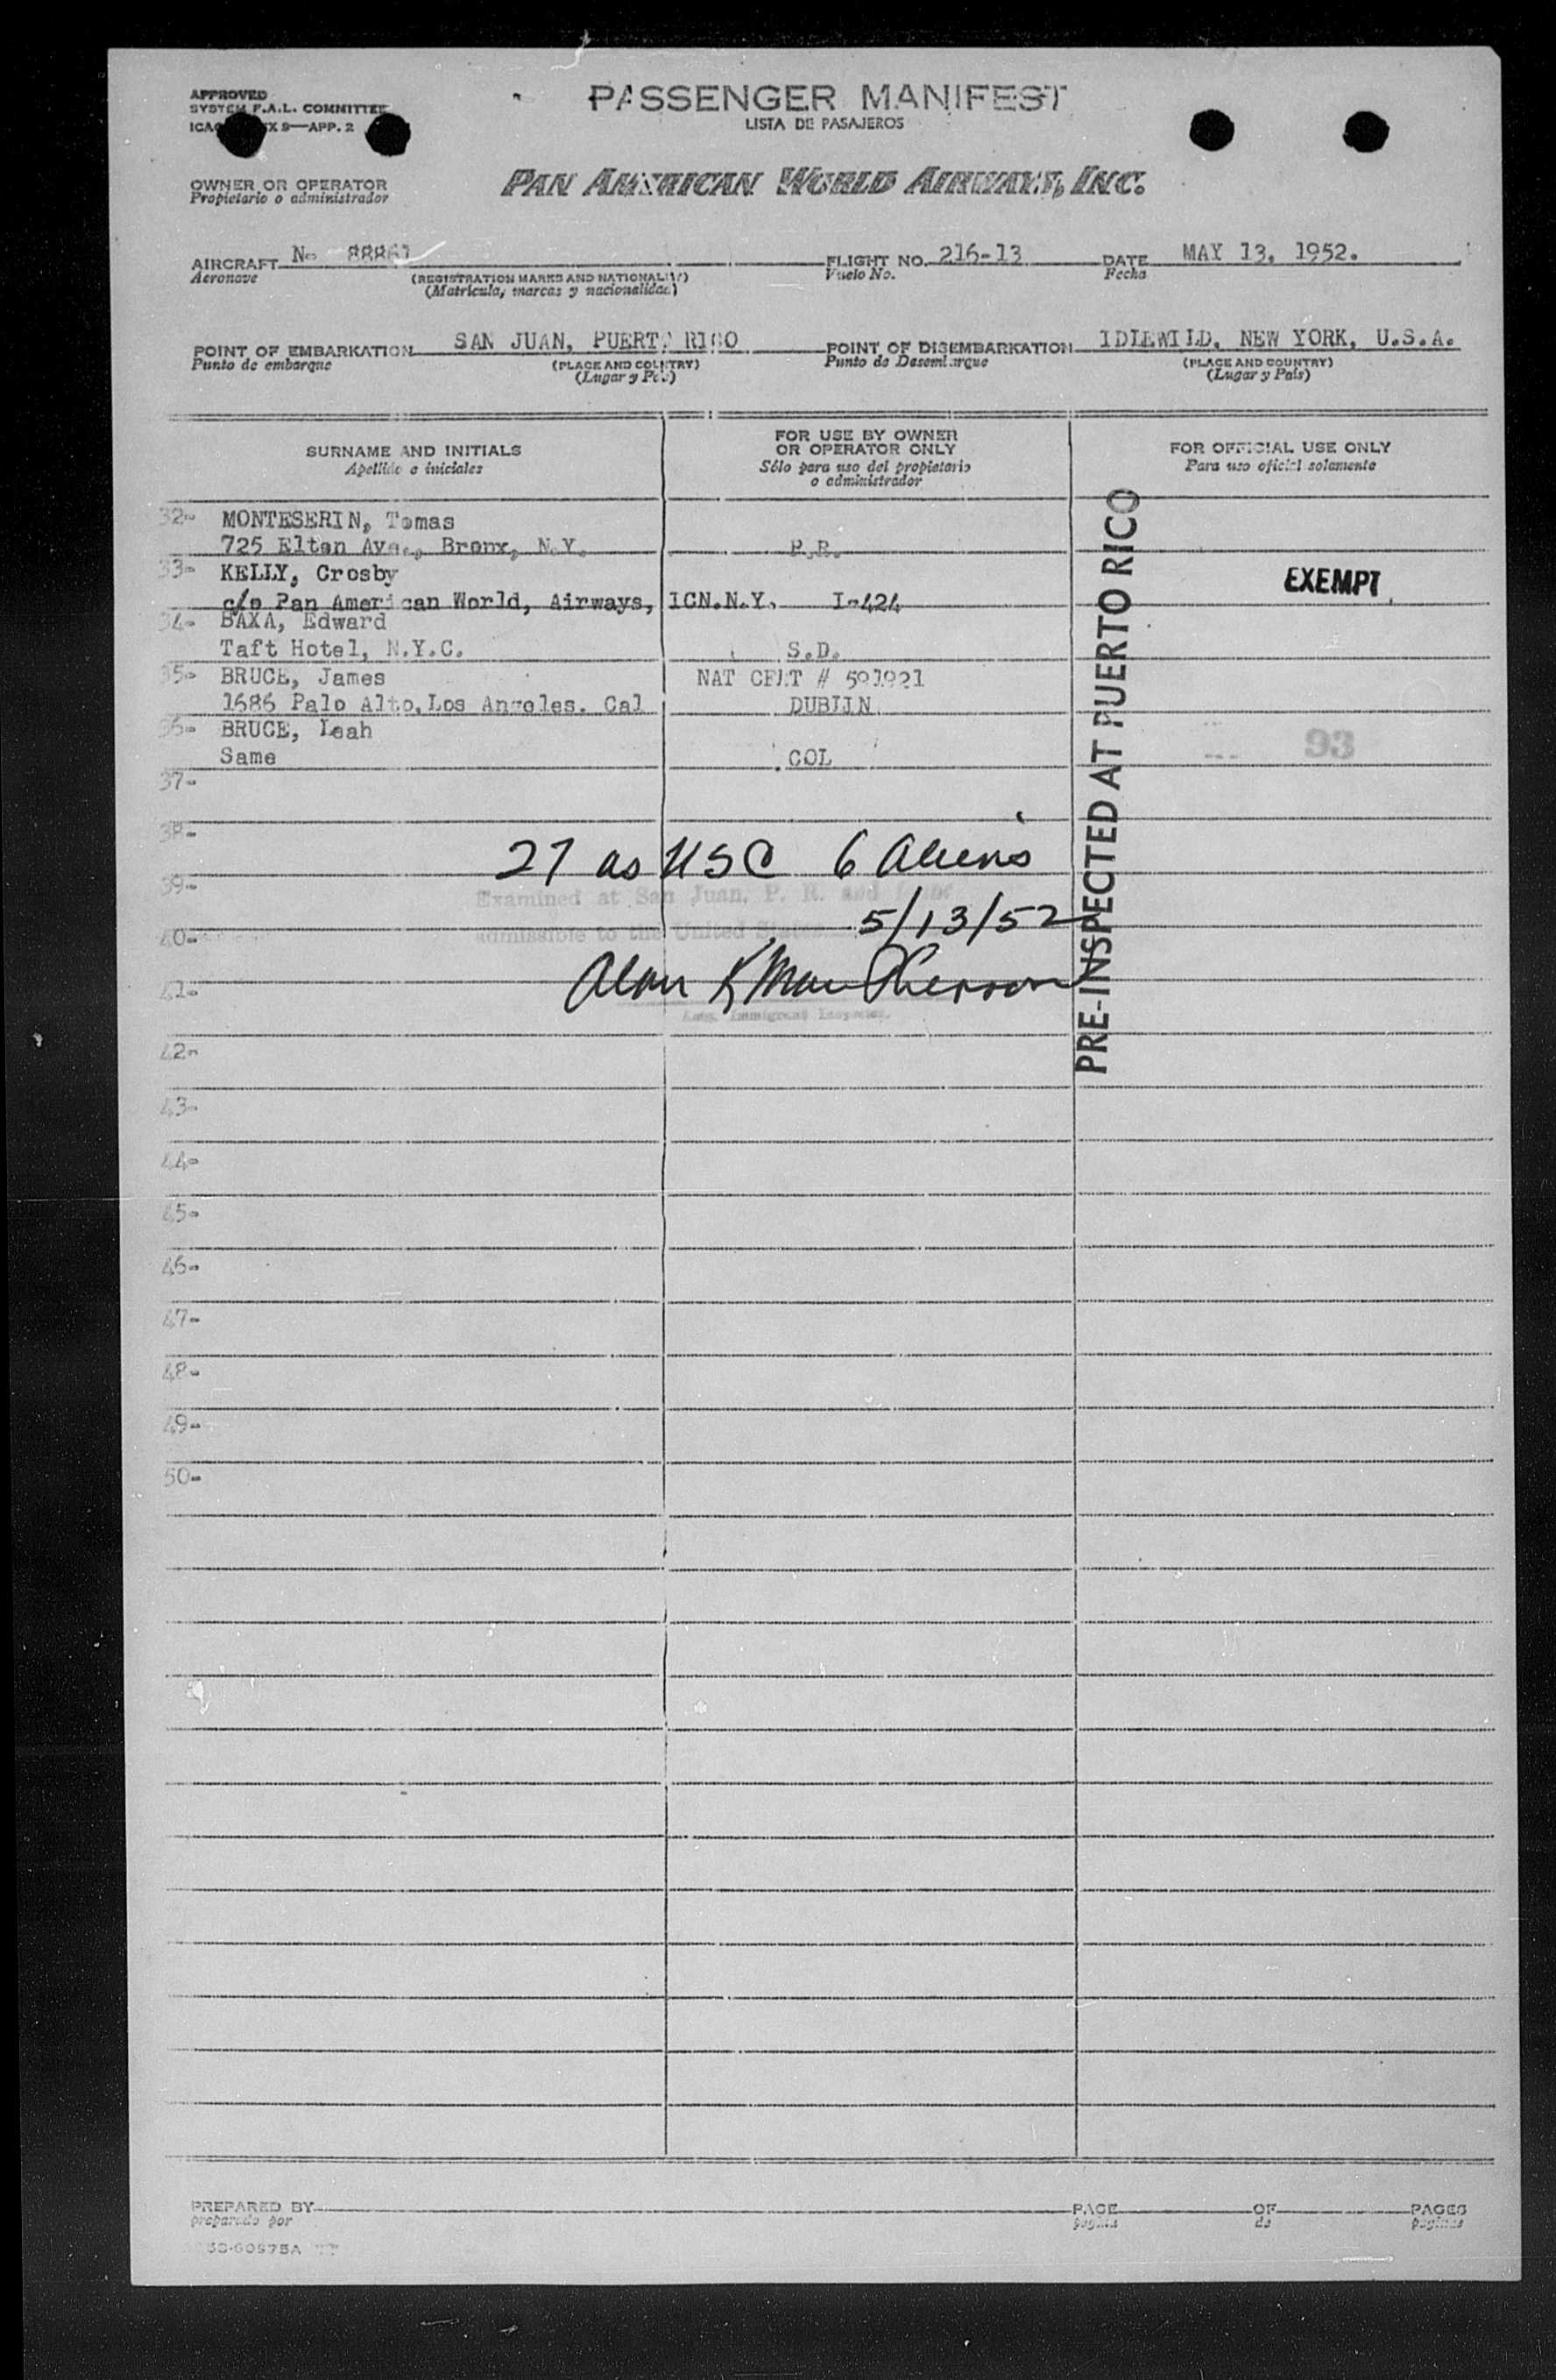 APPROVED
SYSTEM F.A.L. COMMITTEE
X 9—APP. 2
PASSENGER MANIFEST
LISTA DE PASAJEROS
OWNER OR OPERATOR
Propietario o administrador
PAN AMERICAN WORLD AIRWAYS, INC.
AIRCRAFT No 88861 FLIGHT NO. 216-13 DATE MAY 13, 1952.
Aeronave (REGISTRATION MARKS AND NATIONALITY) Vuelo No. Fecha
(Matricula, marcas y nacionalidad)
POINT OF EMBARKATION SAN JUAN, PUERTO RICO POINT OF DISEMBARKATION IDLEWILD, NEW YORK, U.S.A.
Punto de embarque (PLACE AND COUNTRY) Punto de Desembarque (PLACE AND COUNTRY)
(Lugar y País) (Lugar y País)
SURNAME AND INITIALS
Apellido e iniciales
FOR USE BY OWNER
OR OPERATOR ONLY
Sólo para uso del propietario
o administrador
FOR OFFICIAL USE ONLY
Para uso oficial solamente
32- MONTESERIN, Tomas
725 Elton Ave., Bronx, N.Y. P.R.
33- KELLY, Crosby EXEMPT
c/o Pan American World, Airways, ICN.N.Y. I-424
34- BAXA, Edward
Taft Hotel, N.Y.C. S.D.
35- BRUCE, James NAT CERT #
1686 Palo Alto, Los Angeles. Cal DUBLIN
36- BRUCE, Leah
Same COL 93
37-
38-
27 as USC 6 Aliens
39-
Examined at San Juan, P. R. and
5/13/52
40-
admissible to the United States
41-
Alan K MacPherson
Immigrant Inspector.
PRE-INSPECTED AT PUERTO RICO
42-
43-
44-
45-
46-
47-
48-
49-
50-
PREPARED BY PAGE OF PAGES
preparado por página de páginas